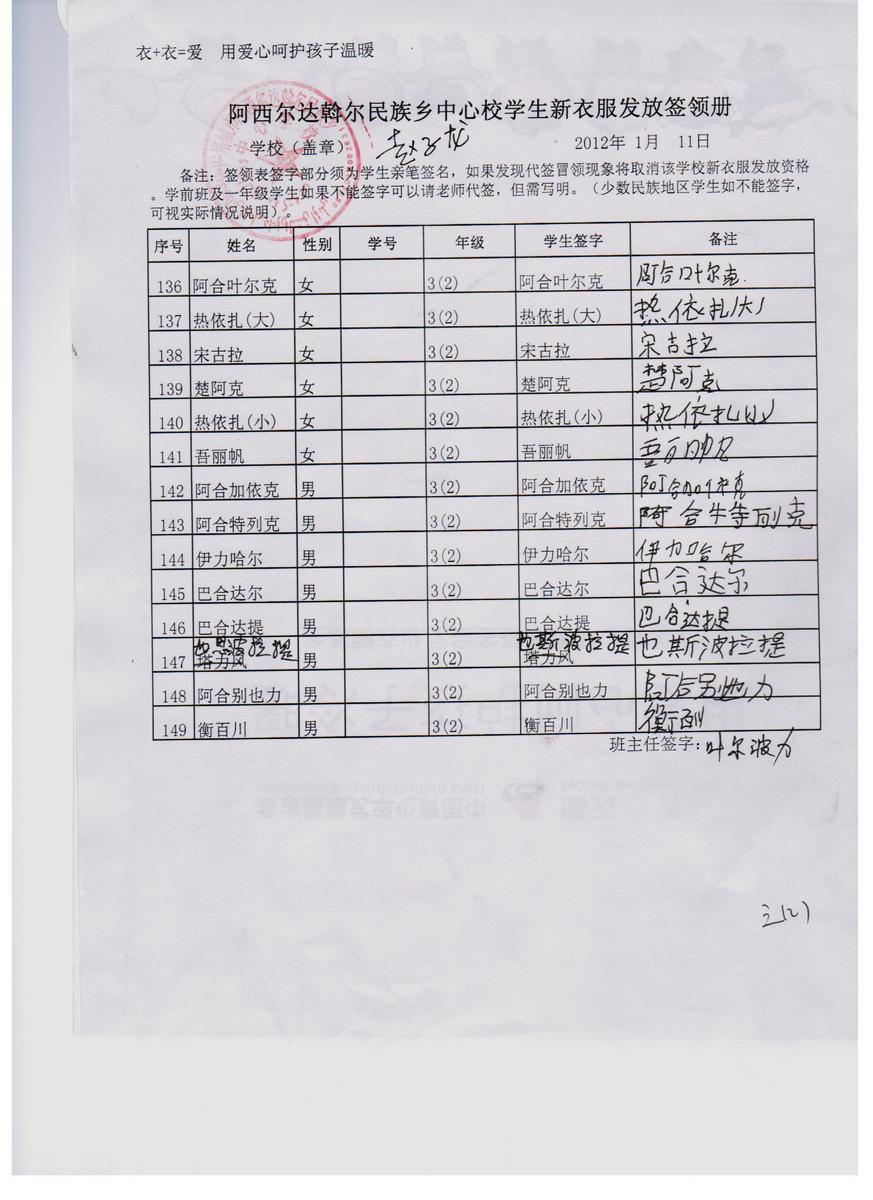 衣+衣=爱 用爱心呵护孩子温暖
阿西尔达斡尔民族乡中心校学生新衣服发放签领册
学校（盖章） 2012年 1月 11日
备注：签领表签字部分须为学生亲笔签名，如果发现代签冒领现象将取消该学校新衣服发放资格
。学前班及一年级学生如果不能签字可以请老师代签，但需写明。（少数民族地区学生如不能签字，
可视实际情况说明）。
序号 姓名 性别 学号 年级 学生签字 备注
136 阿合叶尔克 女 3(2) 阿合叶尔克 阿合叶尔克.
137 热依扎(大) 女 3(2) 热依扎(大) 热依扎(大)
138 宋古拉 女 3(2) 宋古拉 宋古拉
139 楚阿克 女 3(2) 楚阿克 楚阿克
140 热依扎(小) 女 3(2) 热依扎(小) 热依扎(小)
141 吾丽帆 女 3(2) 吾丽帆
142 阿合加依克 男 3(2) 阿合加依克 阿合加依克
143 阿合特列克 男 3(2) 阿合特列克 阿合特列克
144 伊力哈尔 男 3(2) 伊力哈尔 伊力哈尔
145 巴合达尔 男 3(2) 巴合达尔 巴合达尔
146 巴合达提 男 3(2) 巴合达提 巴合达提
也思波拉提 也斯波拉提
147 塔力风 男 3(2) 塔力风 也斯波拉提
148 阿合别也力 男 3(2) 阿合别也力 阿合别也力
149 衡百川 男 3(2) 衡百川
班主任签字：叶尔波力